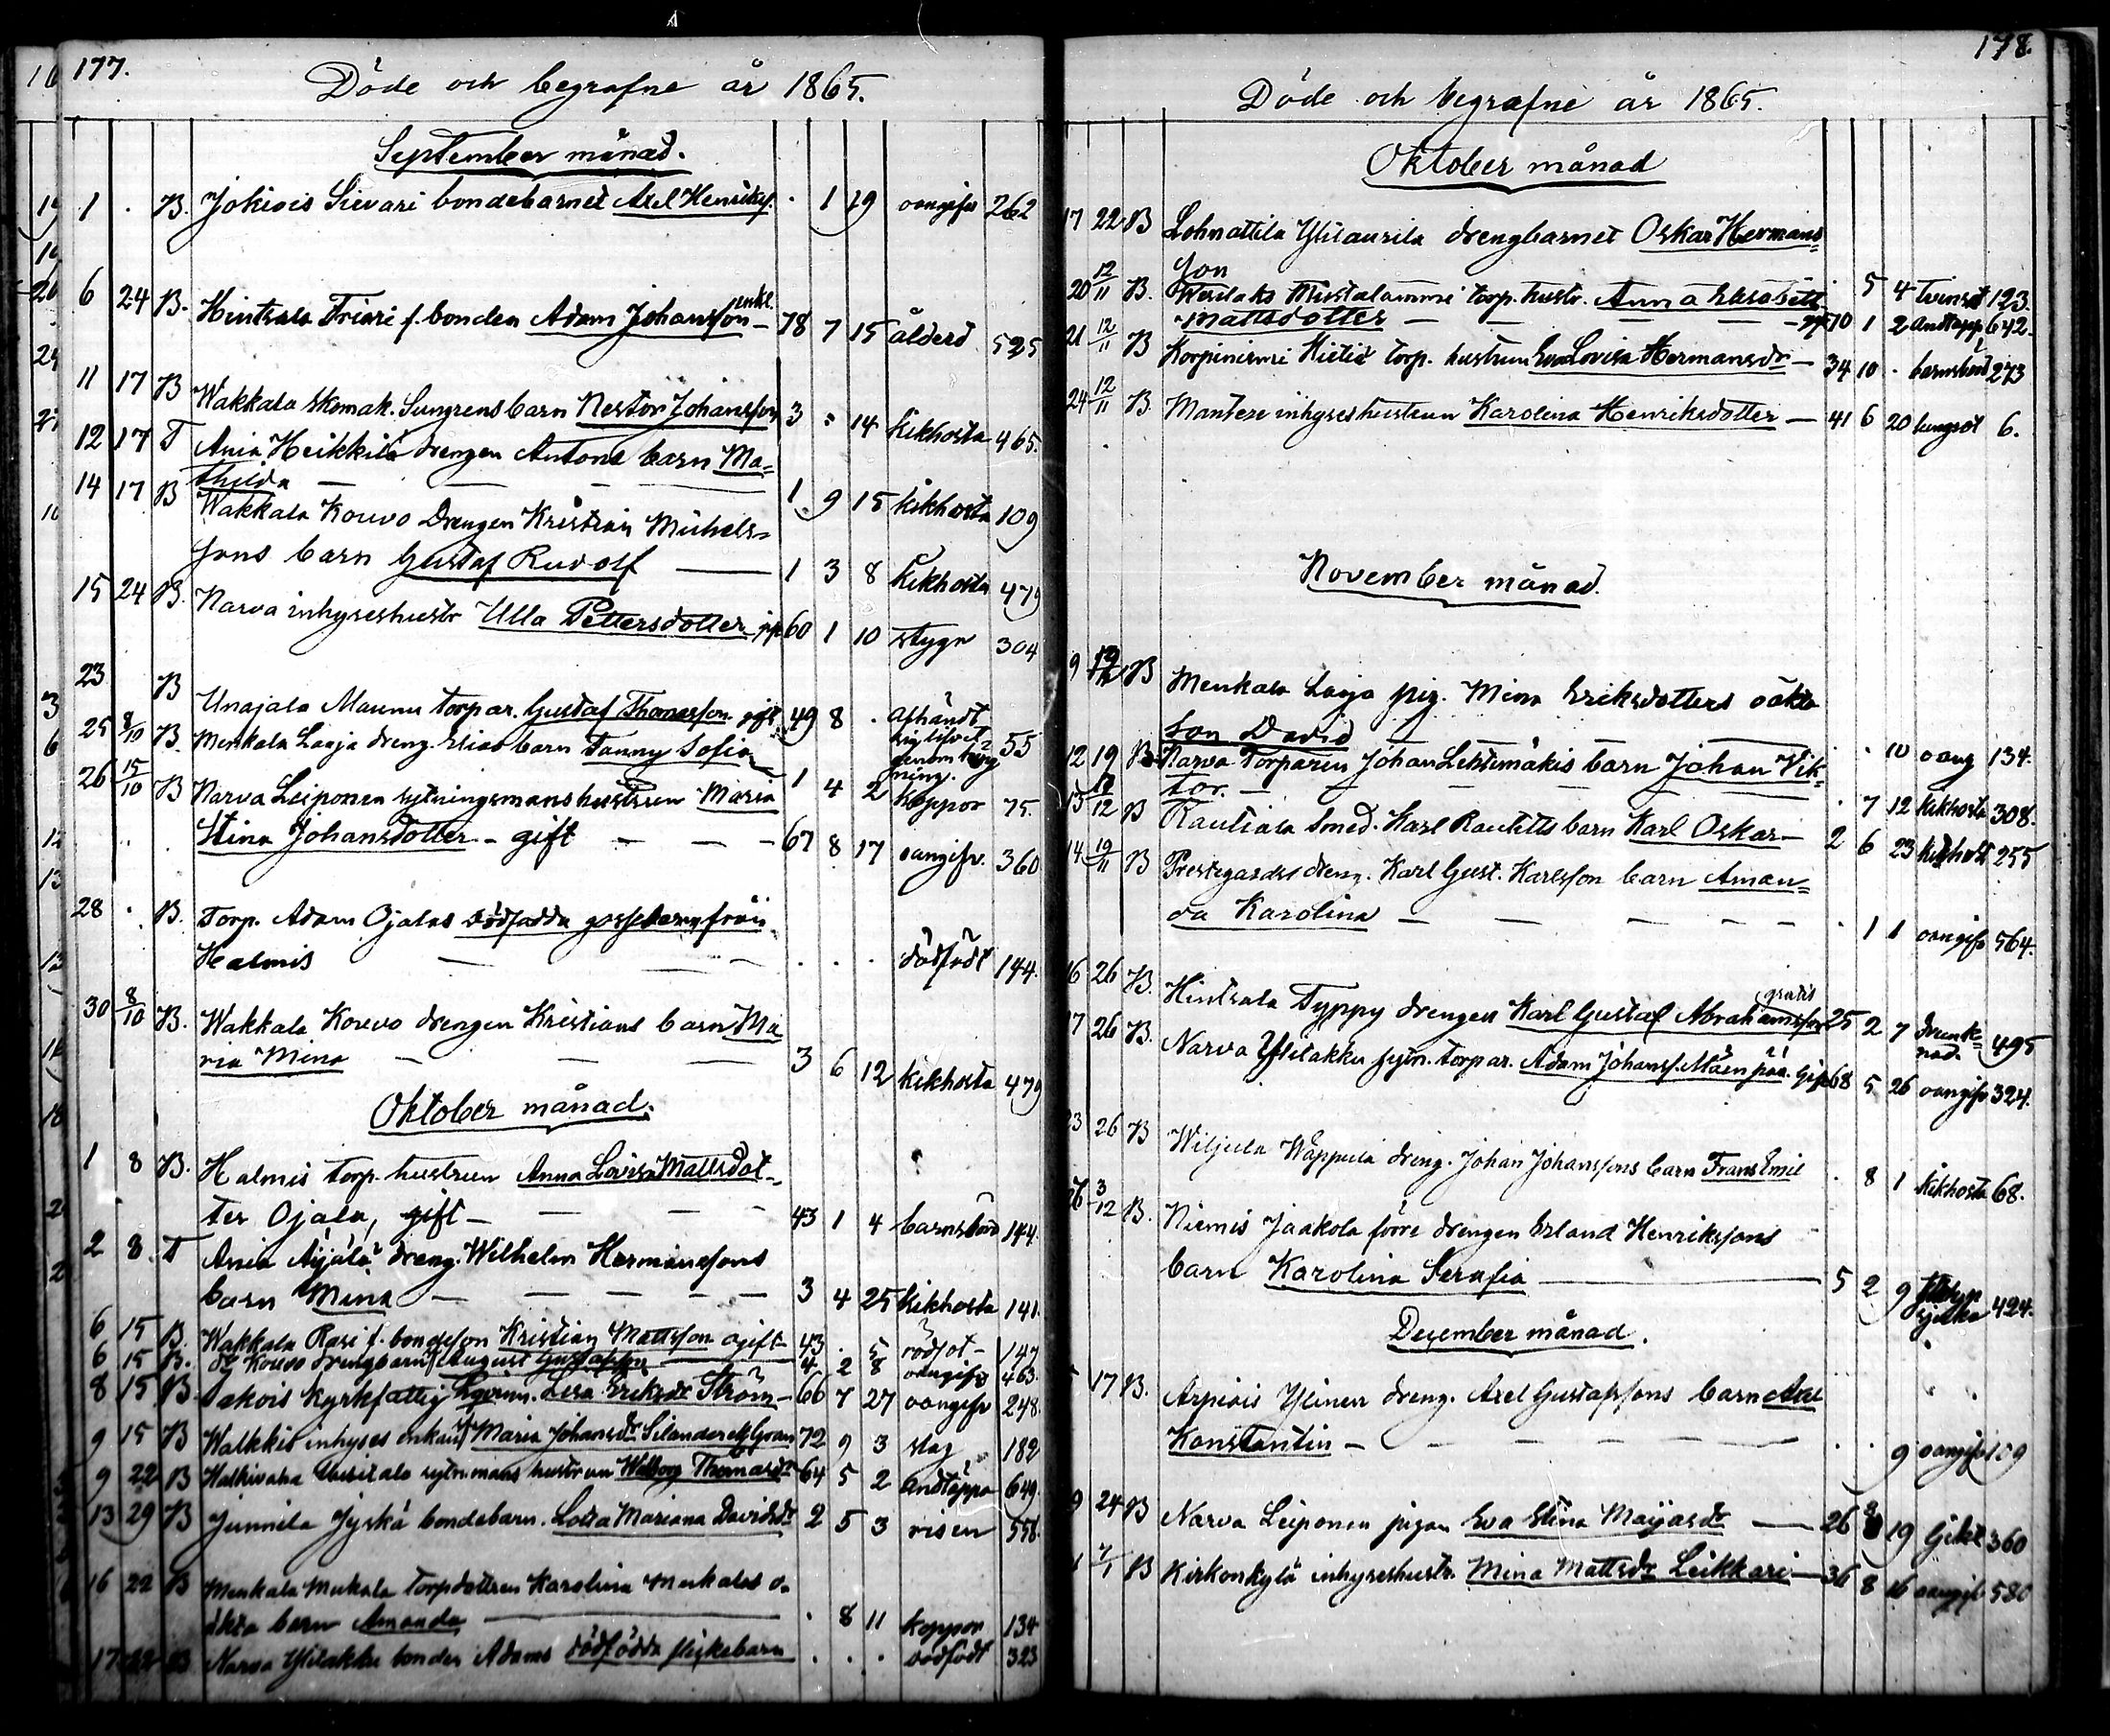 177.
Döde och begrafne år 1865.
September månad.
1 . B. Jokiois Sievari bondebarnet Axel Henriksf. . 1 19 oangifv 262
6 24 B. Hintsala Friari f. bonden Adam Johansson enkl. – 78 7 15 ålderd 525
11 17 B Wakkala skomak. Sungrens barn Nestor Johansson 3 . 14 Kikhosta 465.
12 17 T Ania Heikkilä drengen Antons barn Ma=
thilda — 1 9 15 Kikhosta 109
14 17 B Wakkala Kouvo Drengen Kristian Michels=
sons barn Gustaf Rudolf — 1 3 8 Kikhosta 479
15 24 B. Narva inhyseshustr Ulla Pettersdotter 60 1 10 stygn 304
23 B Unajala Maunu torpar. Gustaf Thomasson gift 49 8 . afhändt
sig lifvet 55
genom häng
ning.
25 8/10 B Menkala Laaja dreng. Elias barn Fanny Sofia 1 4 2 Koppor 75.
26 15/10 B Narva Leiponen rytningsmanshustrun Maria
Stina Johansdotter – gift — 67 8 17 oangifv. 360
28 . B. Torp. Adam Ojalas dödfödda gossebarn från
Halmis — . . . dödfödt 144.
30 8/10 B. Wakkala Kouvo drengen Kristians barn Ma
ria Mina — 3 6 12 Kikhosta 479
Oktober månad.
1 8 B. Halmis torp. hustrun Anna Lovisa Mattsdot=
ter Ojala, gift — 43 1 4 barnsbörd 144.
2 8 T Ania Äijälä dreng. Wilhelm Hermanssons
barn Mina — 3 4 25 Kikhosta 141.
6 15 B. Wakkala Rasi f. bondsson Kristian Mattsson ogift 43 . 5 rödsot 147
6 15 B. do Kouvo drengbarnet August Gustafsson 4 2 8 oangifv 463.
8 15 B Jakois kyrkfattig Lisa Eriksdr Ström – 66 7 27 oangifv 248.
9 15 B Walkkis inhyses enkan Maria Johansdr Silander 72 9 3 slag 182
9 22 B Halkivaha Uusitalo rytn.mans hustrun Walborg Thomasdr 64 5 2 Andtäppa 649.
13 29 B Junnila Jyskä bondebarn. Lovisa Mariana Davidsdr 2 5 3 risen 558.
16 22 B Menkala Mukala torpdottren Karolina Mukalas o=
äkta barn Amanda — . 8 11 koppor 134
17 22 B Narva Ylitakku bonden Adams dödfödda flickebarn . . . dödfödt 323
178.
Döde och begrafne år 1865.
Oktober månad
17 22 B Lohnattila Ylitaurila drengbarnet Oskar Hermans=
son . 5 4 tvinsot 123.
20 12/11 B. Wesilaks Mustalammi torp. hustr. Anna Elisabett
Mattsdotter — 70 1 2 Andtäpp 642.
21 12/11 B Korpiniemi Hietie torp. hustrun Eva Lovisa Hermansdr — 34 10 . barnsbörd 273
24 12/11 B. Mantere inhyseshustrun Karolina Henriksdotter — 41 6 20 lungsot 6.
November månad.
9 B Menkala Laaja pig. Mina Eriksdotters oäkta
son David . . 10 oang 134.
12 19 B Narva Torparen Johan Lehtimäkis barn Johan Vik=
tor. — . 7 12 Kikhosta 308.
13 B Rautiala smed. Karl Rautells barn Karl Oskar — 2 6 23 kikhost 255
14 19/11 B Prestgårds dreng. Karl Gust. Karlsson barn Aman=
da Karolina — . 1 1 oangifv 564.
16 26 B. Hintsala Typpy drengen Karl Gustaf Abrahamsson gratis 25 2 7 drunk=
nad. 495
17 26 B. Narva Ylitakku rytn. torpar. Adam Johanss. Mäenpää. Gift 68 5 26 oangifv 324.
23 26 B Wiljula Wappula dreng. Johan Johanssons barn Frans Emil . 8 1 Kikhosta 68.
26 3/12 B. Niemis Jaakola förre drengen Erland Henrikssons
barn Karolina Serafia — 5 2 9 sjuka 424.
December månad.
17 B. Arpiois Ylinen dreng. Axel Gustafssons barn Axel
Konstantin — . . 9 oangifv 159
9 24 B Narva Leiponen pigan Eva Stina Maijasdr — 26 8 19 Gikt 360
B Kirkonkylä inhyseshustr. Mina Mattsdr Leikkari — 36 8 16 oangif 580